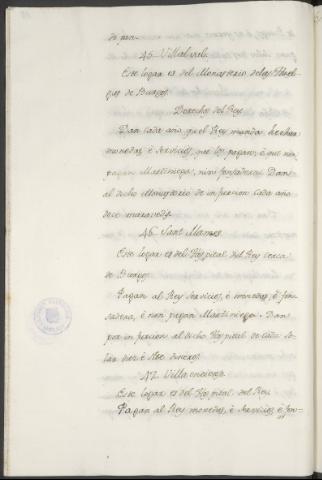 de pan.
45 Villalvel.
Este logar es del Monasterio delas Huel-
gas de Burgos.
Derechos del Rey
Dan cada año, que el Rey manda hechar
monedas é servicios, que los pagan, é que non
pagan Martiniega, nin fonsadera. Dan
al dicho Monasterio de infurcion cada año
doce maravedis.
46 Sant Mames
Este logar es del Hospital del Rey cerca
de Burgos.
Pagan al Rey servicios, é monedas, é fon-
sadera, é non pagan Martiniega. Dan
por infurcion al dicho Hospital de cada so-
lar diez é seis dineros.
47 Villa
Este logar es del Hospital del Rey
Pagan al Rey monedas, é servicios é fon-